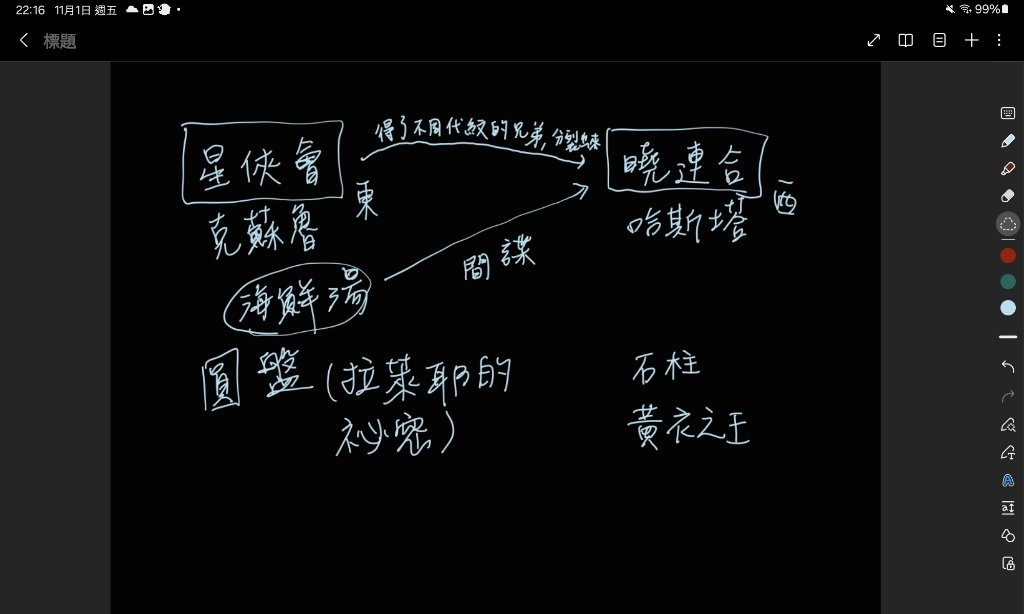 22:16 11月1日 週五
99%
標題
得了不同代紋的兄弟,分裂出來
星俠會
曉連合
東
西
克蘇魯
哈斯塔
間諜
海鮮湯
圓盤(拉萊耶的
祕密)
石柱
黃衣之王